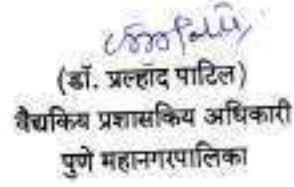 (डॉ. प्रल्हाद पाटिल)
वैद्यकिय प्रशासकिय अधिकारी
पुणे महानगरपालिका